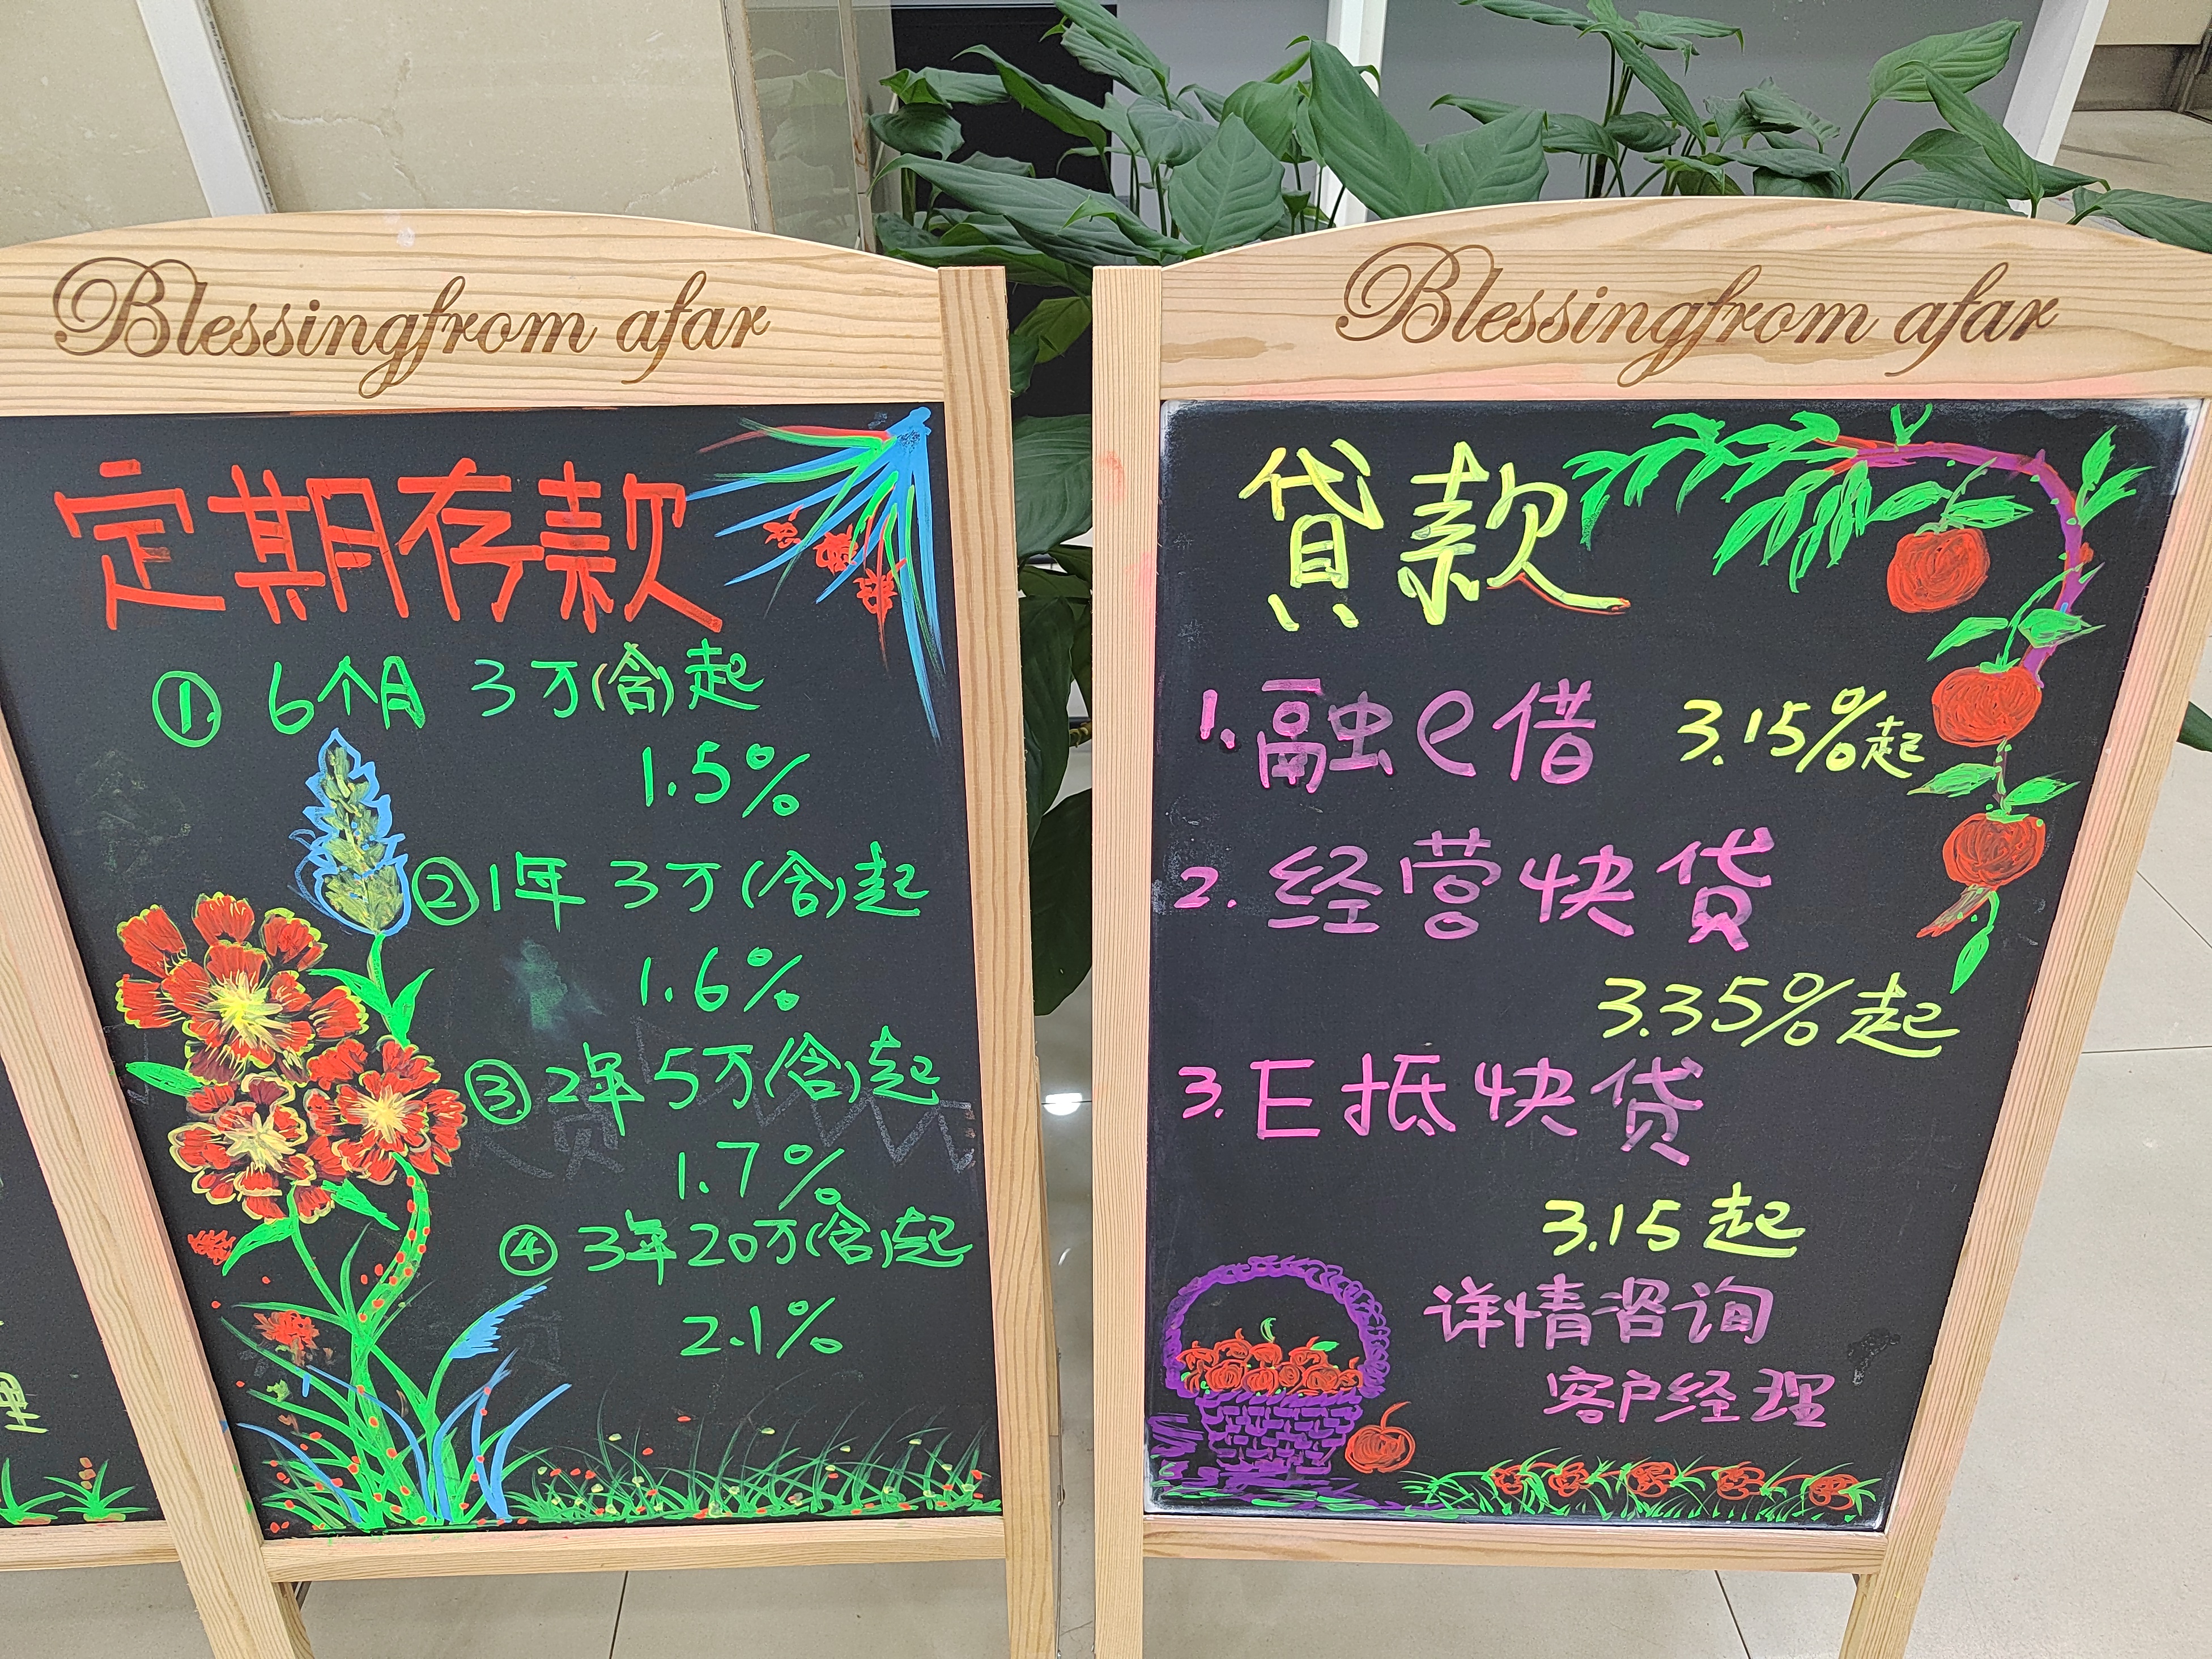 Blessingfrom afar
定期存款
① 6个月 3万(含)起
1.5%
② 1年 3万(含)起
1.6%
③ 2年 5万(含)起
1.7%
④ 3年20万(含)起
2.1%
Blessingfrom afar
贷款
1. 融e借 3.15%起
2. 经营快贷
3.35%起
3. E抵快贷
3.15起
详情咨询
客户经理
理